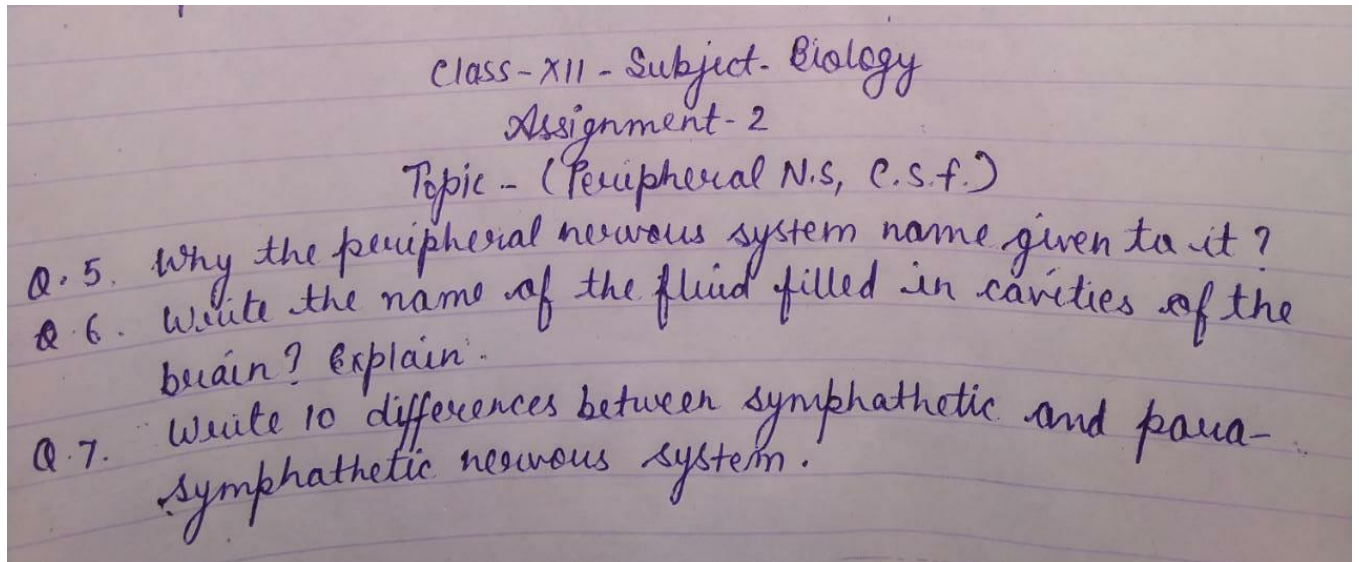 Class-XII - Subject- Biology
Assignment-2
Topic - (Peripheral N.S, C.S.f.)
Q.5. Why the peripheral nervous system name given to it?
Q.6. Write the name of the fluid filled in cavities of the
brain? Explain.
Q.7. Write 10 differences between symphathetic and para-
symphathetic nervous system.